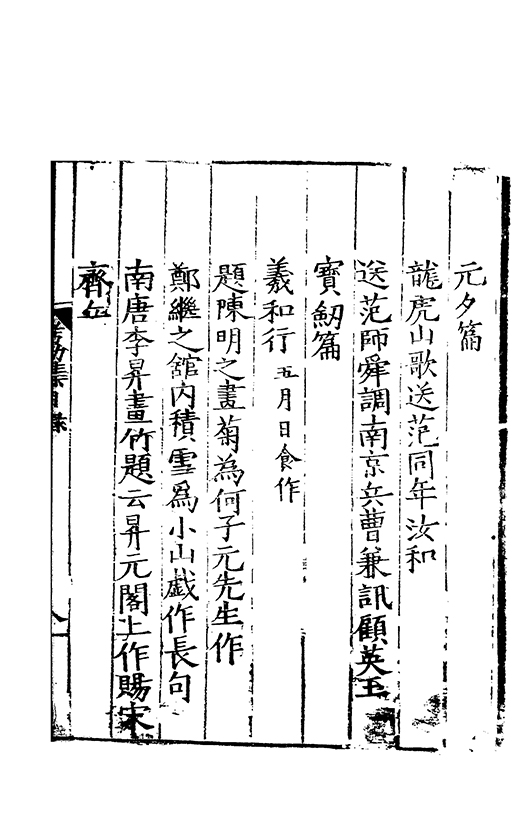 元夕篇
龍虎山歌送范同年汝和
送范師舜調南京兵曹兼訊顧英玉
寶劒篇
羲和行 五月日食作
題陳明之畫菊為何子元先生作
鄭繼之舘内積雪爲小山戯作長句
南唐李昇畫竹題云昇元閣上作賜宋
齊丘
集目錄